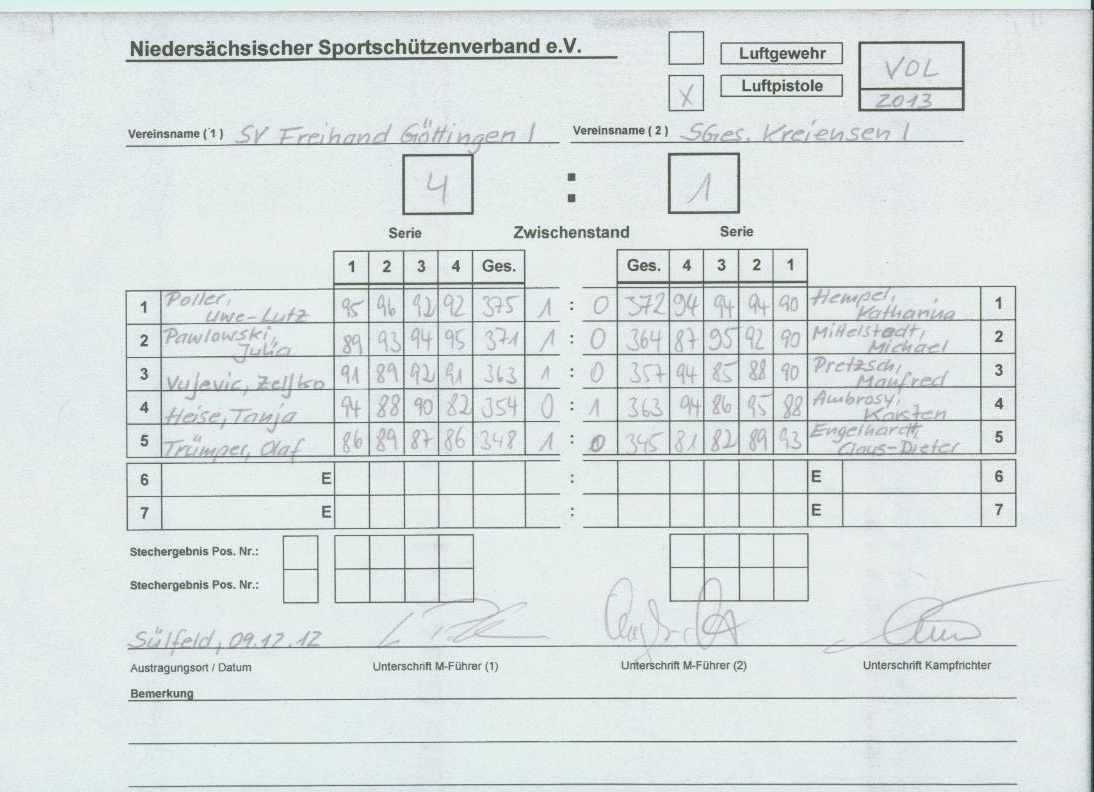 Niedersächsischer Sportschützenverband e.V.
Luftgewehr
X Luftpistole
VOL
2013
Vereinsname (1) SV Freihand Göttingen I Vereinsname (2) SGes. Kreiensen I
4 : 1
Serie Zwischenstand Serie
1 2 3 4 Ges. Ges. 4 3 2 1
1 Poller, Uwe-Lutz 95 96 92 92 375 1 : 0 372 94 94 94 90 Hempel, Katharina 1
2 Pawlowski, Julia 89 93 94 95 371 1 : 0 364 87 95 92 90 Mittelstedt, Michael 2
3 Vujevic, Zeljko 91 89 92 91 363 1 : 0 357 94 85 88 90 Pretzsch, Manfred 3
4 Heise, Tanja 94 88 90 82 354 0 : 1 363 94 86 95 88 Ambrosy, Karsten 4
5 Trümper, Olaf 86 89 87 86 348 1 : 0 345 81 82 89 93 Engelhardt, Claus-Dieter 5
6 E : E 6
7 E : E 7
Stechergebnis Pos. Nr.:
Stechergebnis Pos. Nr.:
Sülfeld, 09.12.12
Austragungsort / Datum Unterschrift M-Führer (1) Unterschrift M-Führer (2) Unterschrift Kampfrichter
Bemerkung